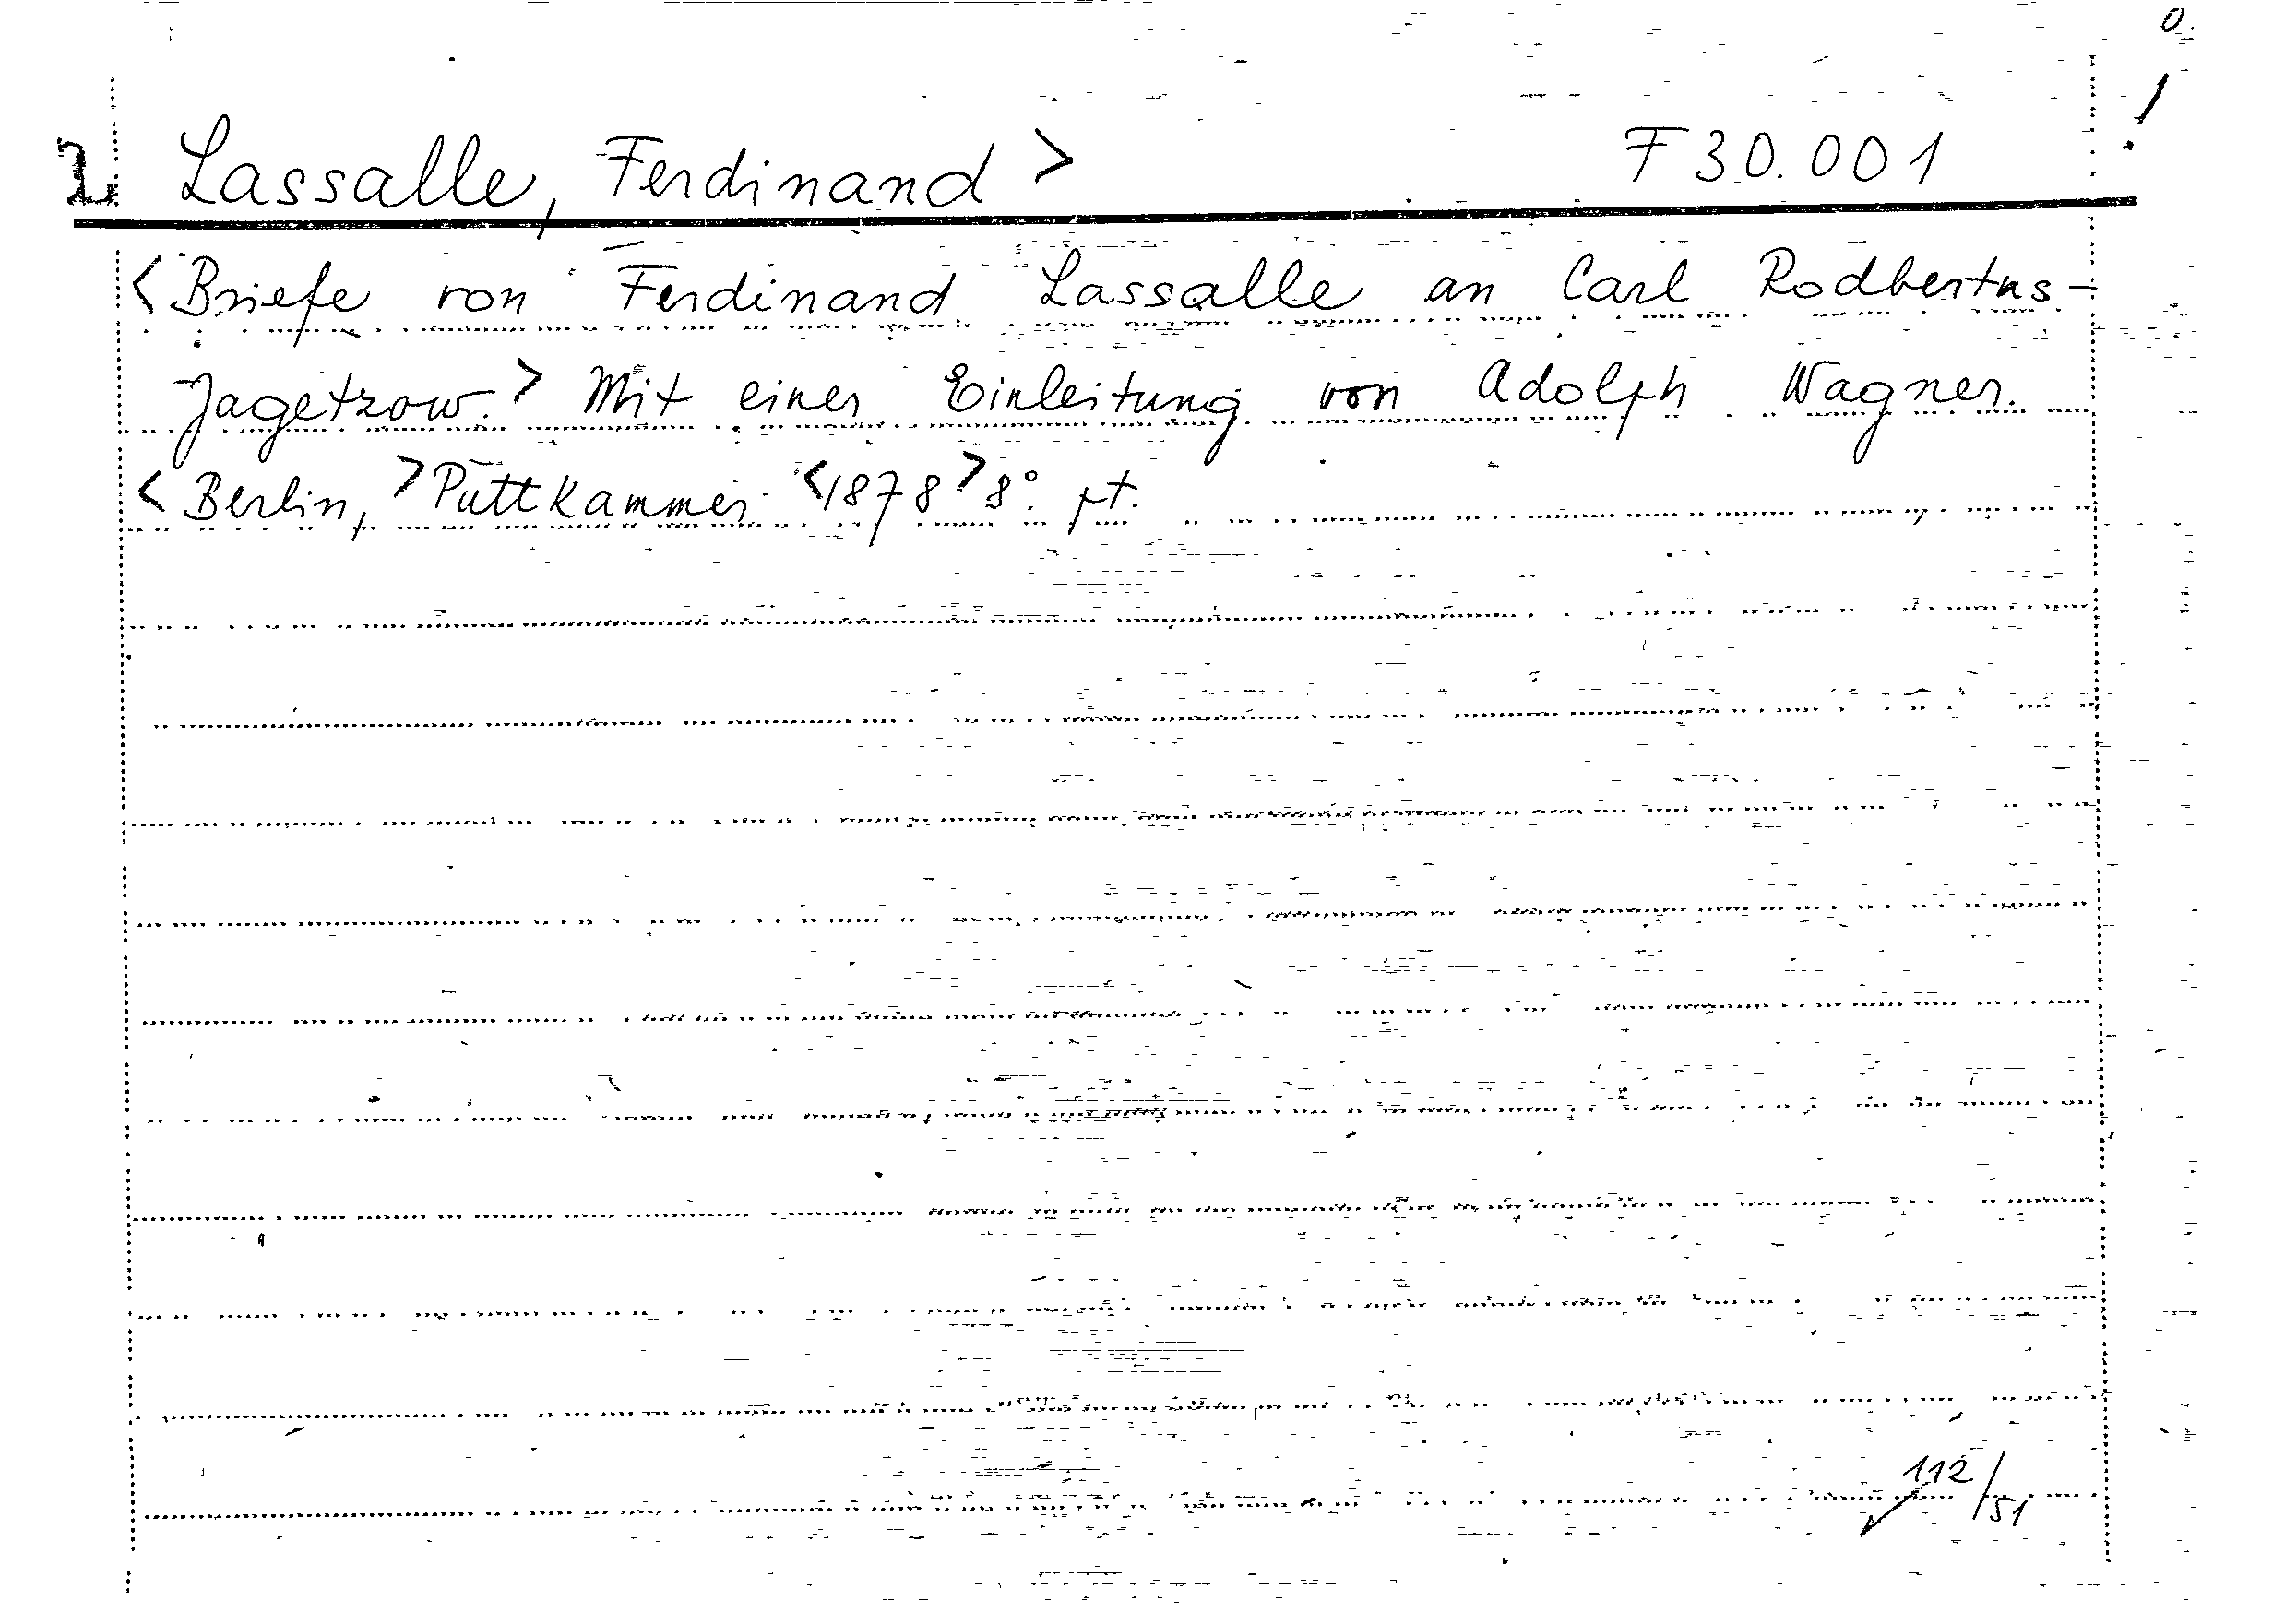 0.
!
2 Lassalle, Ferdinand > F 30.001
<Briefe von Ferdinand Lassalle an Carl Rodbertus-
Jagetzow.> Mit einer Einleitung von Adolph Wagner.
<Berlin, >Puttkammer <1878> 8°. pt.
112/51